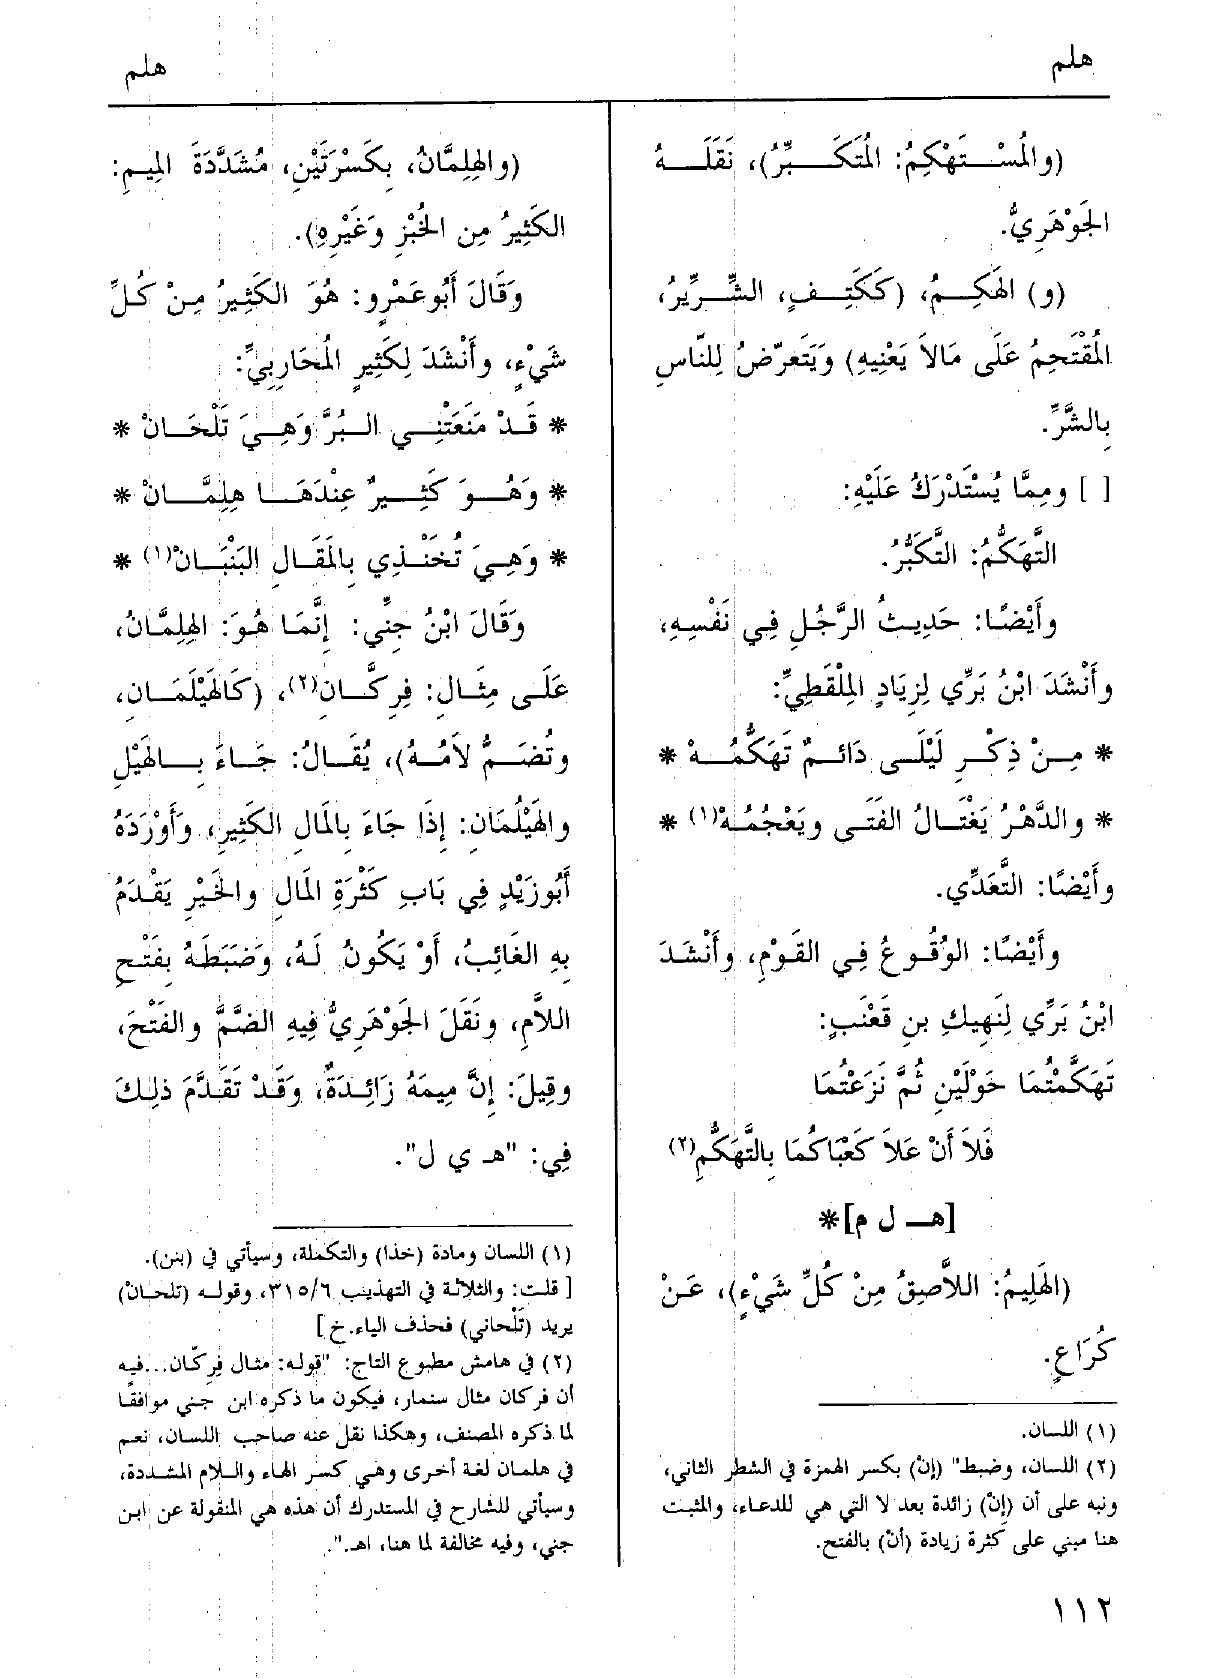 هلم
هلم
(والمُسْتَهْكِمُ: المُتَكَبِّرُ)، نَقَلَهُ
الجَوْهَرِيُّ.
(و) الهَكِمُ، (ككَتِفٍ، الشِّرِّيرُ،
المُقْتَحِمُ عَلَى مَالاَ يَعْنِيهِ) وَيَتَعرّضُ لِلنّاسِ
بِالشَّرِّ.
[ ] ومِمَّا يُسْتَدْرَكُ عَلَيْهِ:
التَّهَكُّمُ: التَّكَبُّرُ.
وأَيْضًا: حَدِيثُ الرَّجُلِ فِي نَفْسِهِ،
وأَنْشَدَ ابْنُ بَرِّي لِزِيَادٍ المِلْقَطِيِّ:
* مِنْ ذِكْرِ لَيْلَى دَائِمٌ تَهَكُّمُهْ *
* والدَّهْرُ يَغْتَالُ الفَتَى ويَعْجُمُهْ(١) *
وأَيْضًا: التَّعَدِّي.
وأَيْضًا: الوُقُوعُ فِي القَوْمِ، وأَنْشَدَ
ابْنُ بَرِّي لِنَهِيكِ بنِ قَعْنَبٍ:
تَهَكَّمْتُمَا حَوْلَيْنِ ثُمَّ نَزَعْتُمَا
فَلاَ أَنْ عَلاَ كَعْبَاكُمَا بِالتَّهَكُّمِ(٢)
[هـ ل م]*
(الهَلِيمُ: اللاَّصِقُ مِنْ كُلِّ شَيْءٍ)، عَنْ
كُرَاعٍ.
(١) اللسان.
(٢) اللسان، وضبط" (إنْ) بكسر الهمزة في الشطر الثاني،
ونبه على أن (إنْ) زائدة بعد لا التي هي للدعاء، والمثبت
هنا مبني على كثرة زيادة (أنْ) بالفتح.
(والهِلِمَّانُ، بِكَسْرَتَيْنِ، مُشَدَّدَةَ المِيمِ:
الكَثِيرُ مِن الخُبْزِ وغَيْرِهِ).
وَقَالَ أَبُوعَمْرٍو: هُوَ الكَثِيرُ مِنْ كُلِّ
شَيْءٍ، وأَنْشَدَ لِكَثِيرٍ المُحَارِبِيِّ:
* قَدْ مَنَعَتْنِي البُرَّ وَهِيَ تَلْحَانْ *
* وَهُوَ كَثِيرٌ عِنْدَهَا هِلِمَّانْ *
* وَهِيَ تُخَنْذِي بِالمَقَالِ البَنْبَانْ(١) *
وَقَالَ ابْنُ جِنِّي: إِنَّمَا هُوَ: الهِلِمَّانُ،
عَلَى مِثَالِ: فِرِكَّانِ(٢)، (كَالهَيْلَمَانِ،
وتُضَمُّ لاَمُهُ)، يُقَالُ: جَاءَ بِالهَيْلِ
والهَيْلُمَانِ: إِذَا جَاءَ بِالمَالِ الكَثِيرِ، وَأَوْرَدَهُ
أَبُوزَيْدٍ فِي بَابِ كَثْرَةِ المَالِ والخَيْرِ يَقْدَمُ
بِهِ الغَائِبُ، أَوْ يَكُونُ لَهُ، وَضَبَطَهُ بِفَتْحِ
اللاَّمِ، ونَقَلَ الجَوْهَرِيُّ فِيهِ الضَّمَّ والفَتْحَ،
وقِيلَ: إِنَّ مِيمَهُ زَائِدَةٌ، وَقَدْ تَقَدَّمَ ذلِكَ
فِي: "هـ ي ل".
(١) اللسان ومادة (خذا) والتكملة، وسيأتي في (بنن).
[ قلت: والثلاثة في التهذيب ٣١٥/٦، وقوله (تلحانْ)
يريد (تَلْحاني) فحذف الياء.خ ]
(٢) في هامش مطبوع التاج: "قوله: مثال فِرِكّان...فيه
أن فركان مثال سنمار، فيكون ما ذكره ابن جني موافقًا
لما ذكره المصنف، وهكذا نقل عنه صاحب اللسان، نعم
في هلمان لغة أخرى وهي كسر الهاء واللام المشددة،
وسيأتي للشارح في المستدرك أن هذه هي المنقولة عن ابن
جني، وفيه مخالفة لما هنا، اهـ.".
١١٢